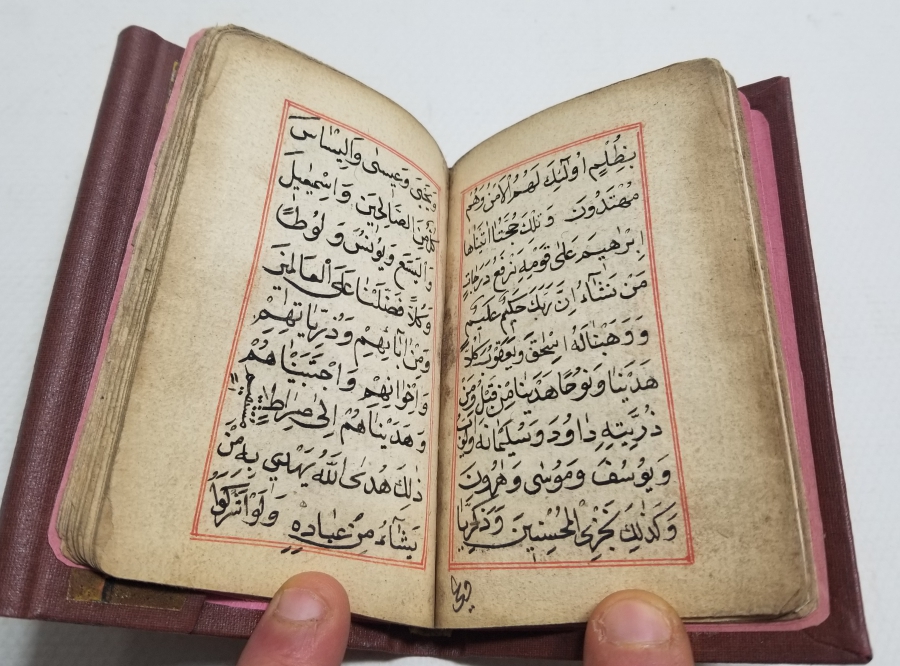 بِظُلْمٍ اُولٰئِكَ لَهُمُ الْاَمْنُ وَهُمْ
مُهْتَدُونَ وَتِلْكَ حُجَّتُنَا اٰتَيْنَاهَا
اِبْرٰهِيمَ عَلٰى قَوْمِهِ نَرْفَعُ دَرَجَاتٍ
مَنْ نَشَاءُ اِنَّ رَبَّكَ حَكِيمٌ عَلِيمٌ
وَوَهَبْنَا لَهُ اِسْحٰقَ وَيَعْقُوبَ كُلًّا
هَدَيْنَا وَنُوحًا هَدَيْنَا مِنْ قَبْلُ وَمِنْ
ذُرِّيَّتِهِ دَاوُدَ وَسُلَيْمَانَ وَاَيُّوبَ
وَيُوسُفَ وَمُوسٰى وَهٰرُونَ
وَكَذٰلِكَ نَجْزِي الْمُحْسِنِينَ وَزَكَرِيَّا
وَيَحْيٰى وَعِيسٰى وَاِلْيَاسَ
كُلٌّ مِنَ الصَّالِحِينَ وَاِسْمٰعِيلَ
وَالْيَسَعَ وَيُونُسَ وَلُوطًا
وَكُلًّا فَضَّلْنَا عَلَى الْعَالَمِينَ
وَمِنْ اٰبَائِهِمْ وَذُرِّيَّاتِهِمْ
وَاِخْوَانِهِمْ وَاجْتَبَيْنَاهُمْ
وَهَدَيْنَاهُمْ اِلٰى صِرَاطٍ مُسْتَقِيمٍ
ذٰلِكَ هُدَى اللّٰهِ يَهْدِي بِهِ مَنْ
يَشَاءُ مِنْ عِبَادِهِ وَلَوْ اَشْرَكُوا